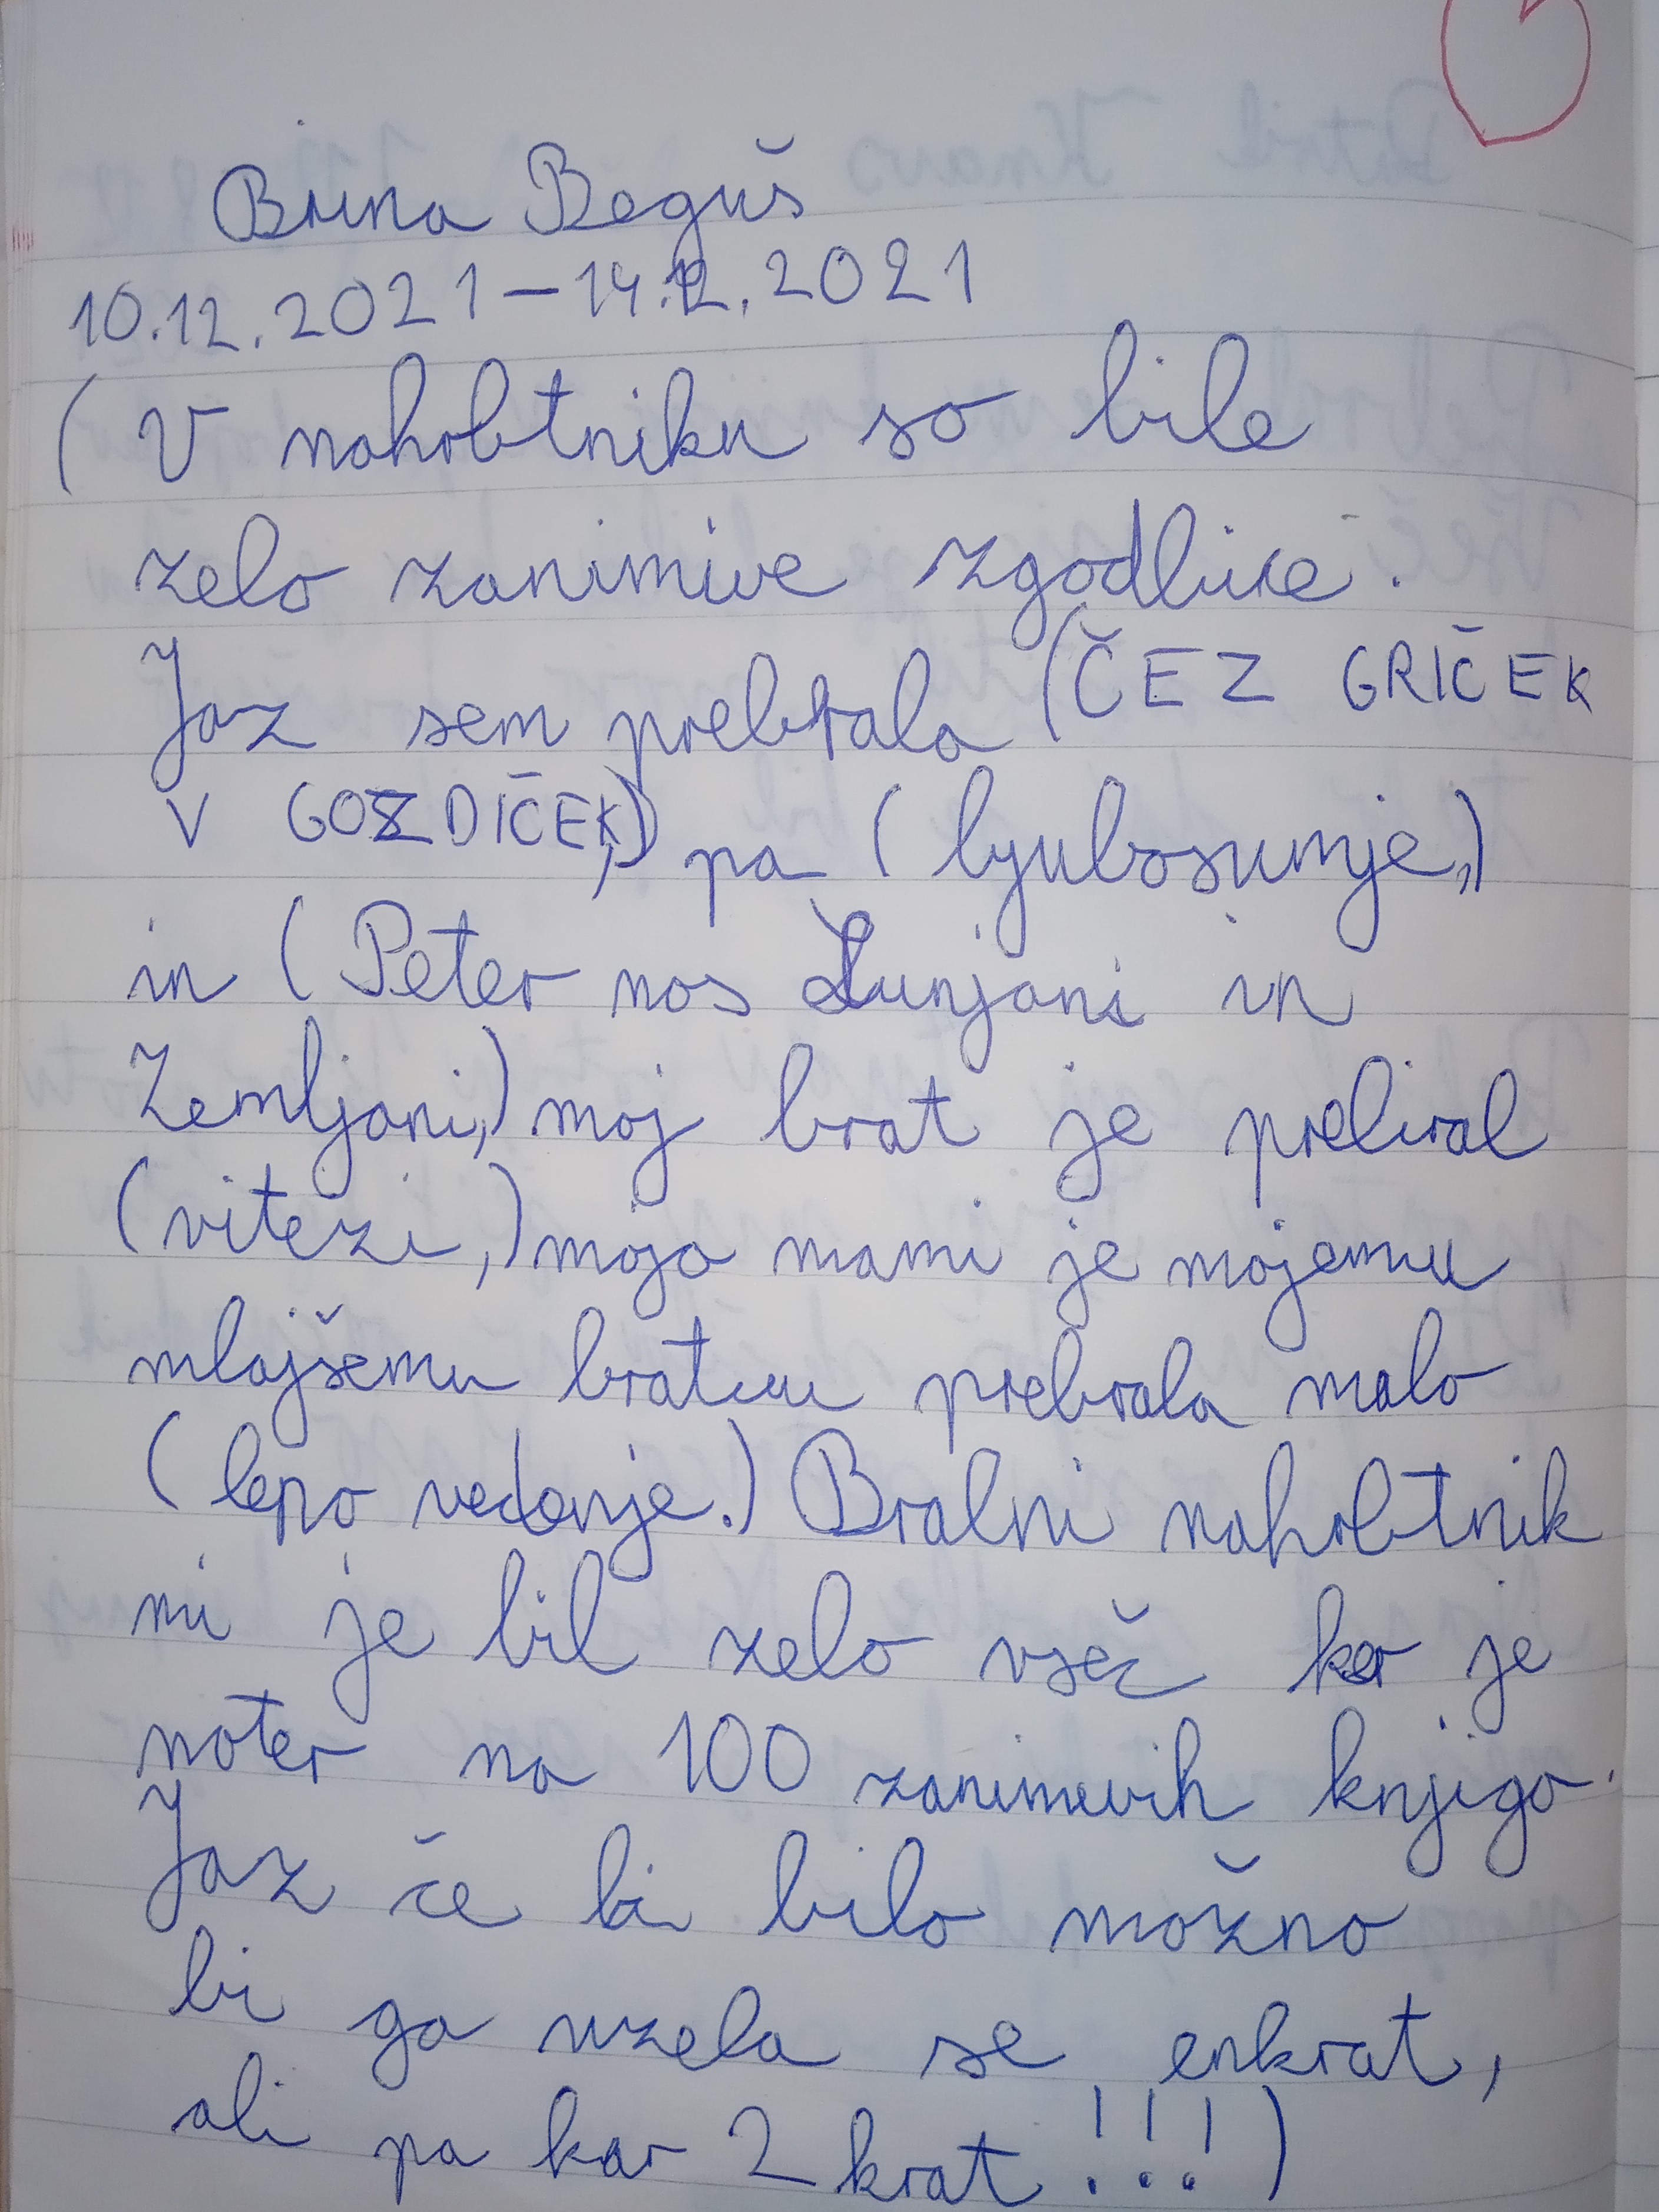 Brina Beguš
10.12.2021 – 14.12.2021
( V nahrbtniku so bile
zelo zanimive zgodbice.
Jaz sem prebrala (ČEZ GRIČEK
V GOZDIČEK,) pa (ljubosumje,)
in (Peter nos Lunjani in
Zemljani,) moj brat je prebral
(vitezi,) moja mami je mojemu
mlajšemu bratcu prebrala malo
(lepo vedenje.) Bralni nahrbtnik
mi je bil zelo všeč ker je
noter na 100 zanimivih knjigo.
Jaz če bi bilo možno
bi ga uzela se enkrat,
ali pa kar 2 krat !!!)